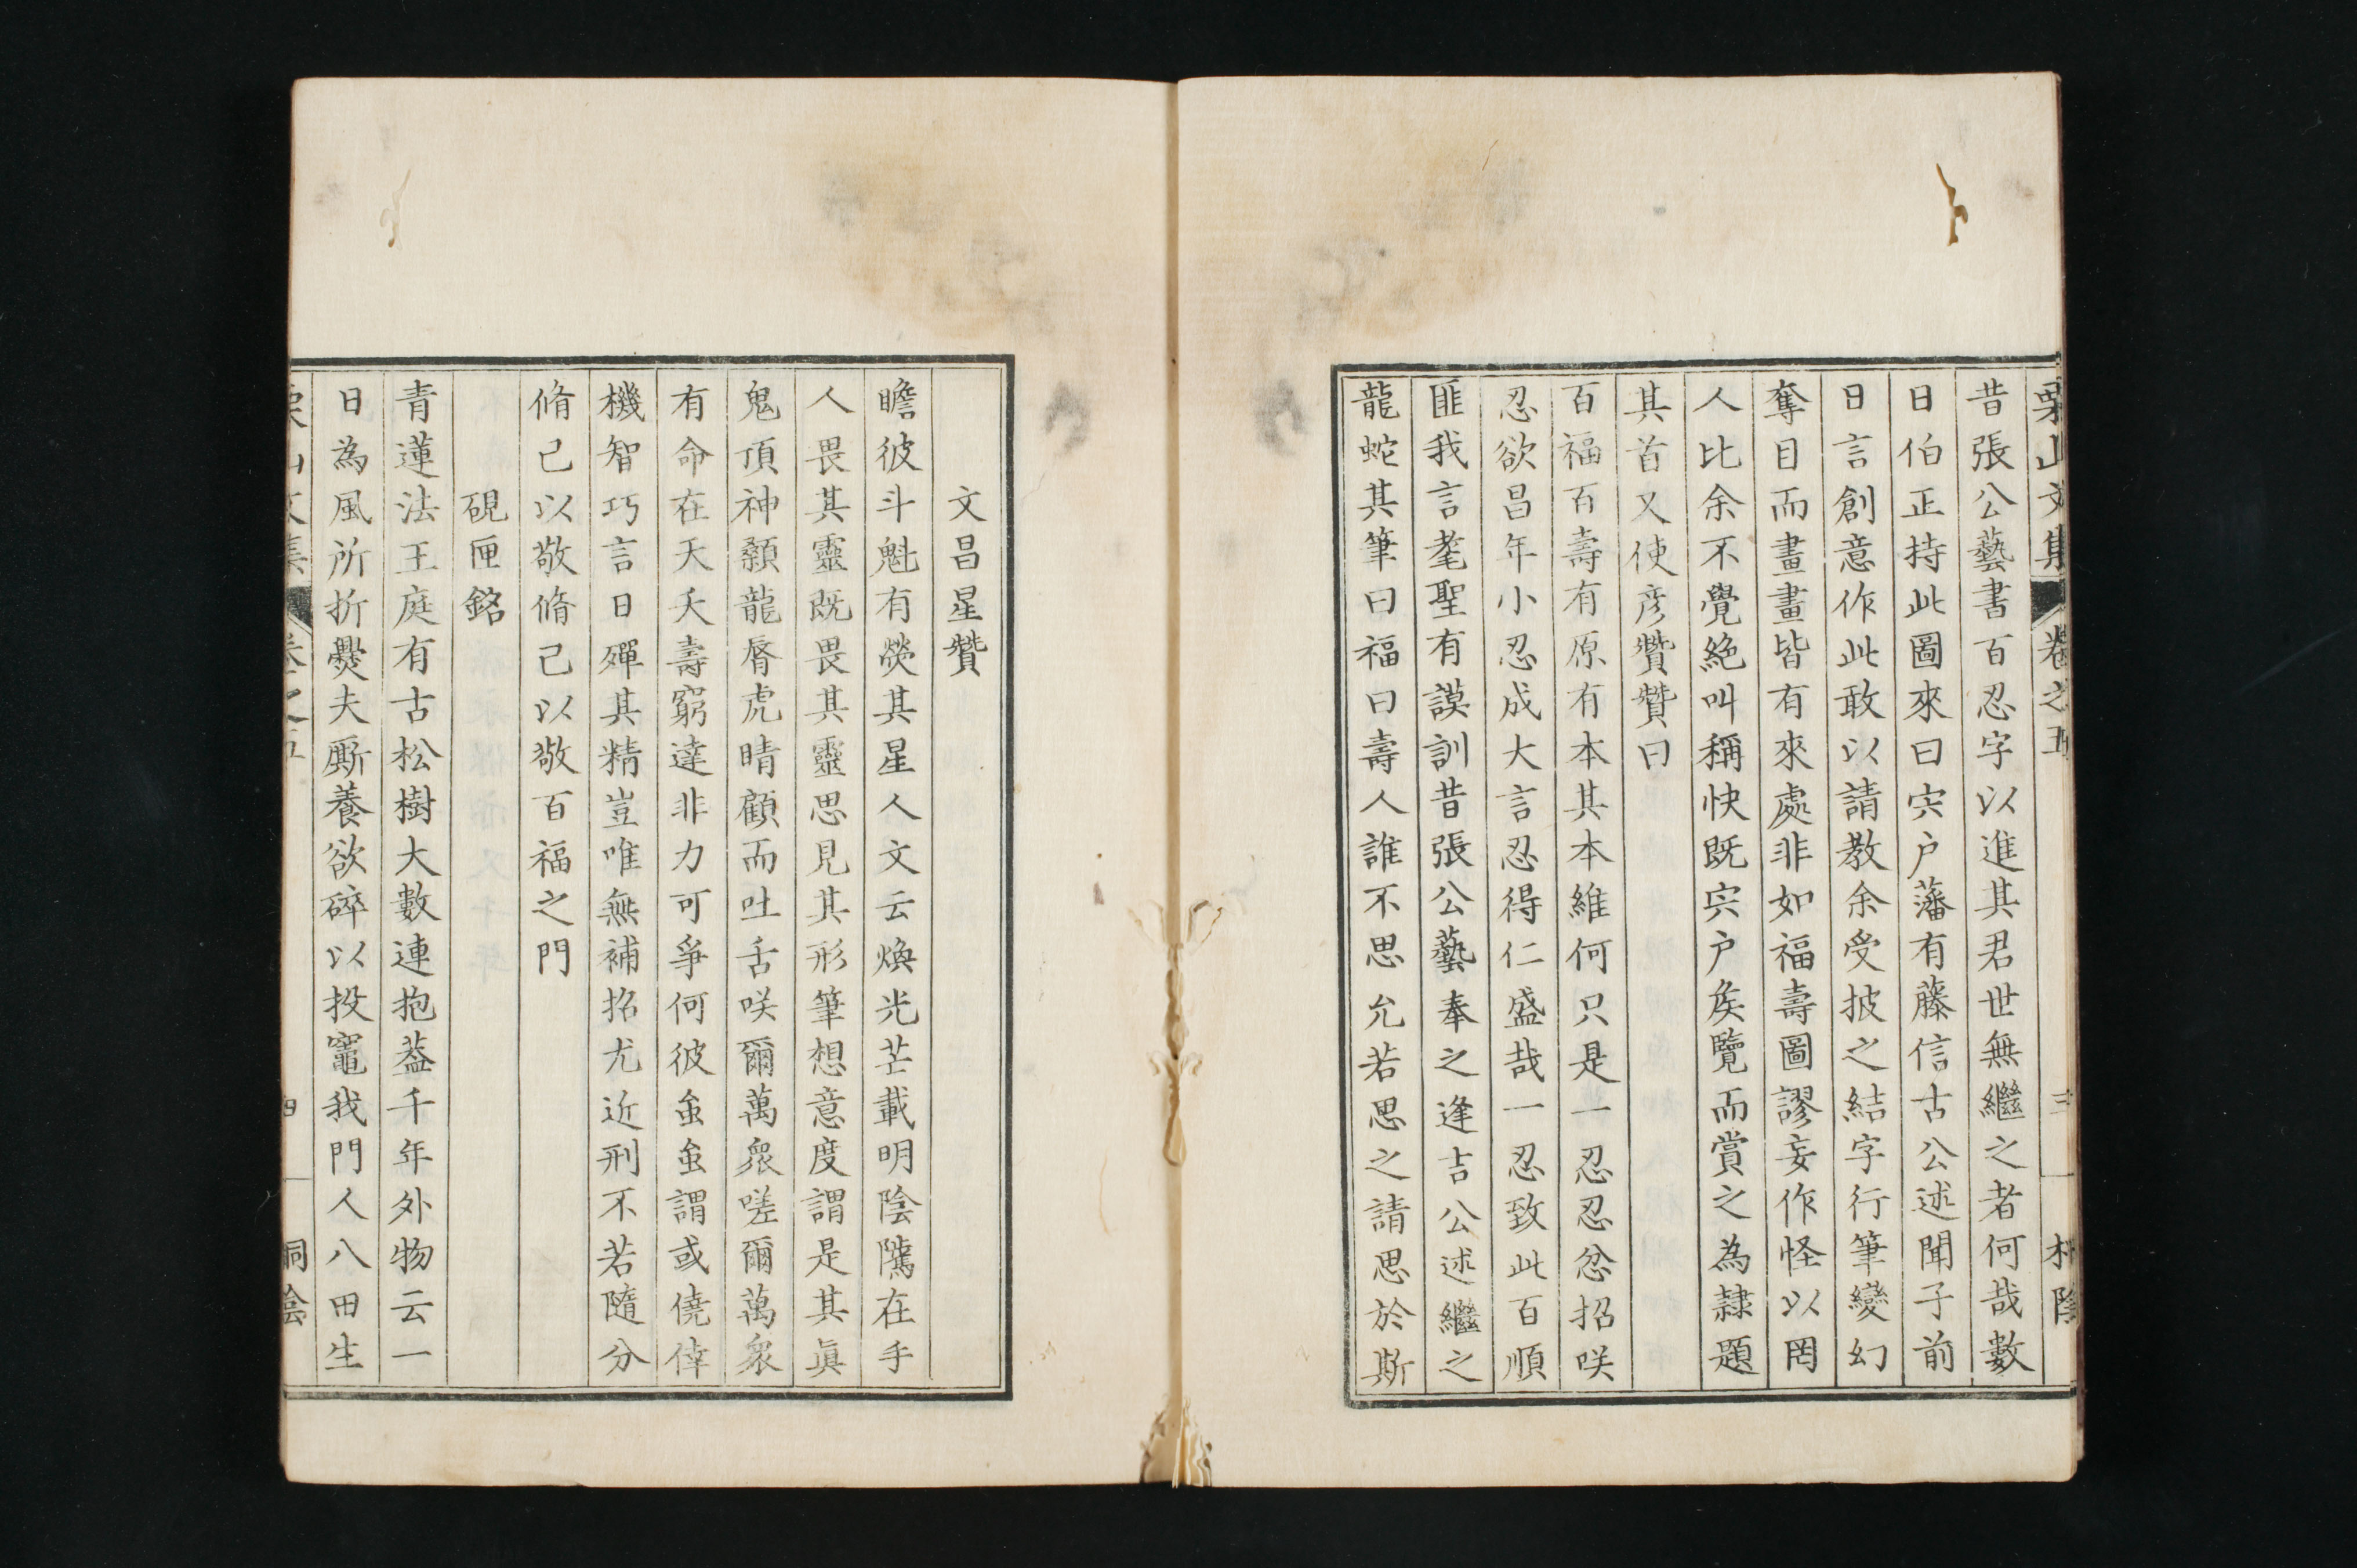 栗山文集 卷之五 三 桐陰
昔張公藝書百忍字以進其君世無繼之者何哉數
日伯正持此圖來曰宍户藩有藤信古公述聞子前
日言創意作此敢以請教余受披之結字行筆變幻
奪目而畫畫皆有來處非如福壽圖謬妄作怪以罔
人比余不覺絶叫稱快既宍户矦覽而賞之為隷題
其首又使彦贊贊曰
百福百壽有原有本其本維何只是一忍忍忿招咲
忍欲昌年小忍成大言忍得仁盛哉一忍致此百順
匪我言耄聖有謨訓昔張公藝奉之逢吉公述繼之
龍蛇其筆曰福曰壽人誰不思允若思之請思於斯
文昌星贊
瞻彼斗魁有熒其星人文云煥光芒載明陰隲在手
人畏其靈既畏其靈思見其形筆想意度謂是其眞
鬼頂神顙龍脣虎睛顧而吐舌咲爾萬衆嗟爾萬衆
有命在天夭壽窮達非力可爭何彼䖝䖝謂或僥倖
機智巧言日殫其精豈唯無補招尤近刑不若隨分
脩己以敬脩己以敬百福之門
硯匣銘
青蓮法王庭有古松樹大數連抱葢千年外物云一
日為風所折爨夫厮養欲碎以投竈我門人八田生
栗山文集 卷之五 四 桐陰